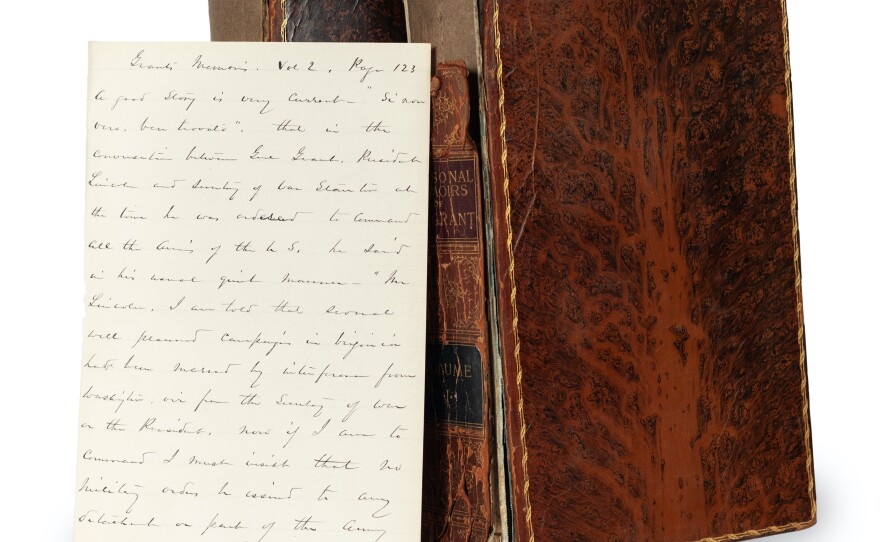 Grants Memoirs. Vol 2. Page 123
A good story is very current - "Si non
vero, ben trovato". that in the
conversation between Genl Grant, President
Lincoln and Secretary of War Stanton at
the time he was ordered to command
all the Armies of the U S. he said
in his usual quiet manner - "Mr
Lincoln, I am told that several
well planned campaigns in Virginia
had been marred by interference from
Washington, viz from the Secretary of War
or the President. now if I am to
command I must insist that no
military orders be issued to any
detachment or part of the army
SONAL
MOIRS
OF
GRANT
UME